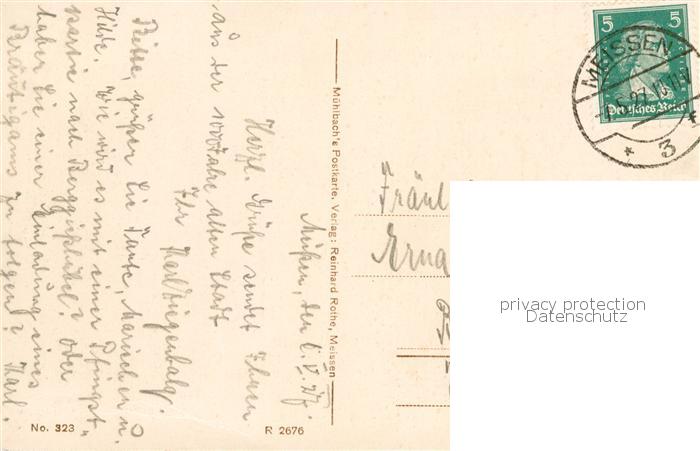 Meißen, den 6.V.27.
Herzl. Grüße sendet Ihnen
aus der 1000 Jahre alten Stadt
Ihr Karl Ziegenbalg.
Bitte, grüßen Sie Tante, Mariechen u.
Hilde. Wie wird es mit einer Pfingst-
partie nach Berggießhübel? oder
haben Sie einer Einladung eines
Bräutigams zu folgen? Karl.
Mühlbach's Postkarte. Verlag: Reinhard Rothe, Meissen
No. 323
R 2676
5 5
Deutsches Reich
MEISSEN
* 3 *
Fräul
Erna
privacy protection
Datenschutz